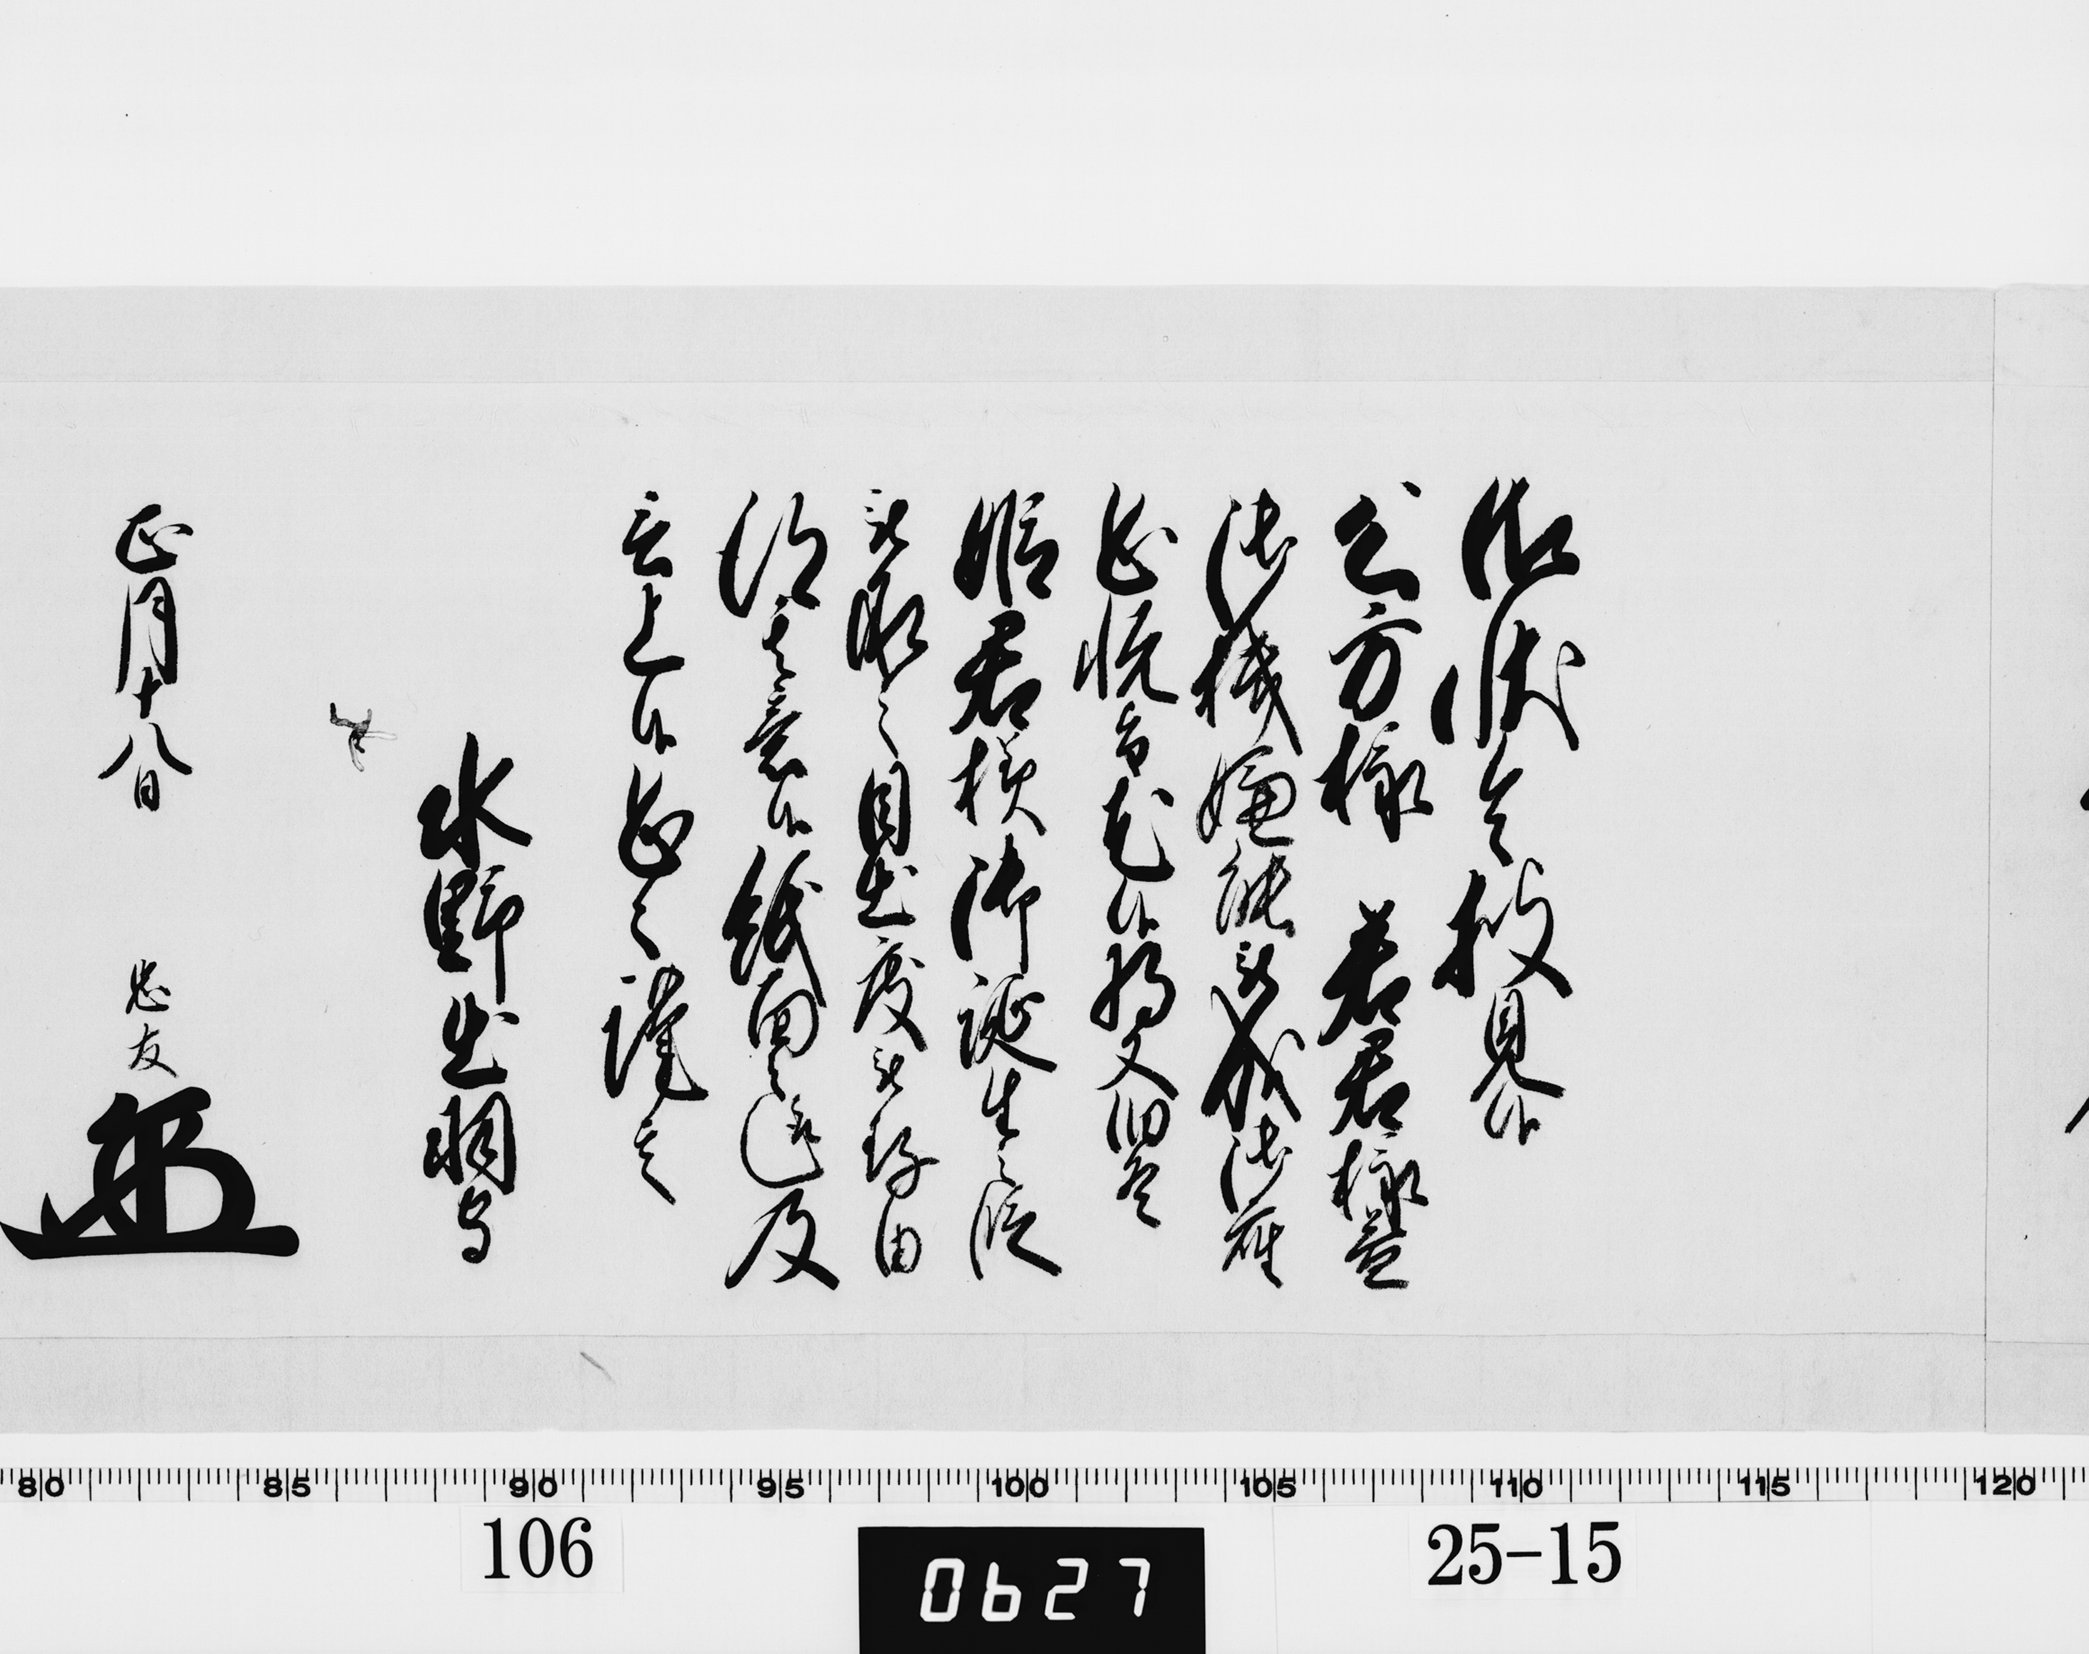 御状令披見候
公方様 若君様益
御機嫌能被成御座
恐悦旨尤候将又旧冬
姫君様御誕生之段
被承之目出度被存由
得其意候紙面之趣及
言上候恐々謹言
水野出羽守
正月十八日 忠友
80 85 90 95 100 105 110 115 120
106
0627
25-15